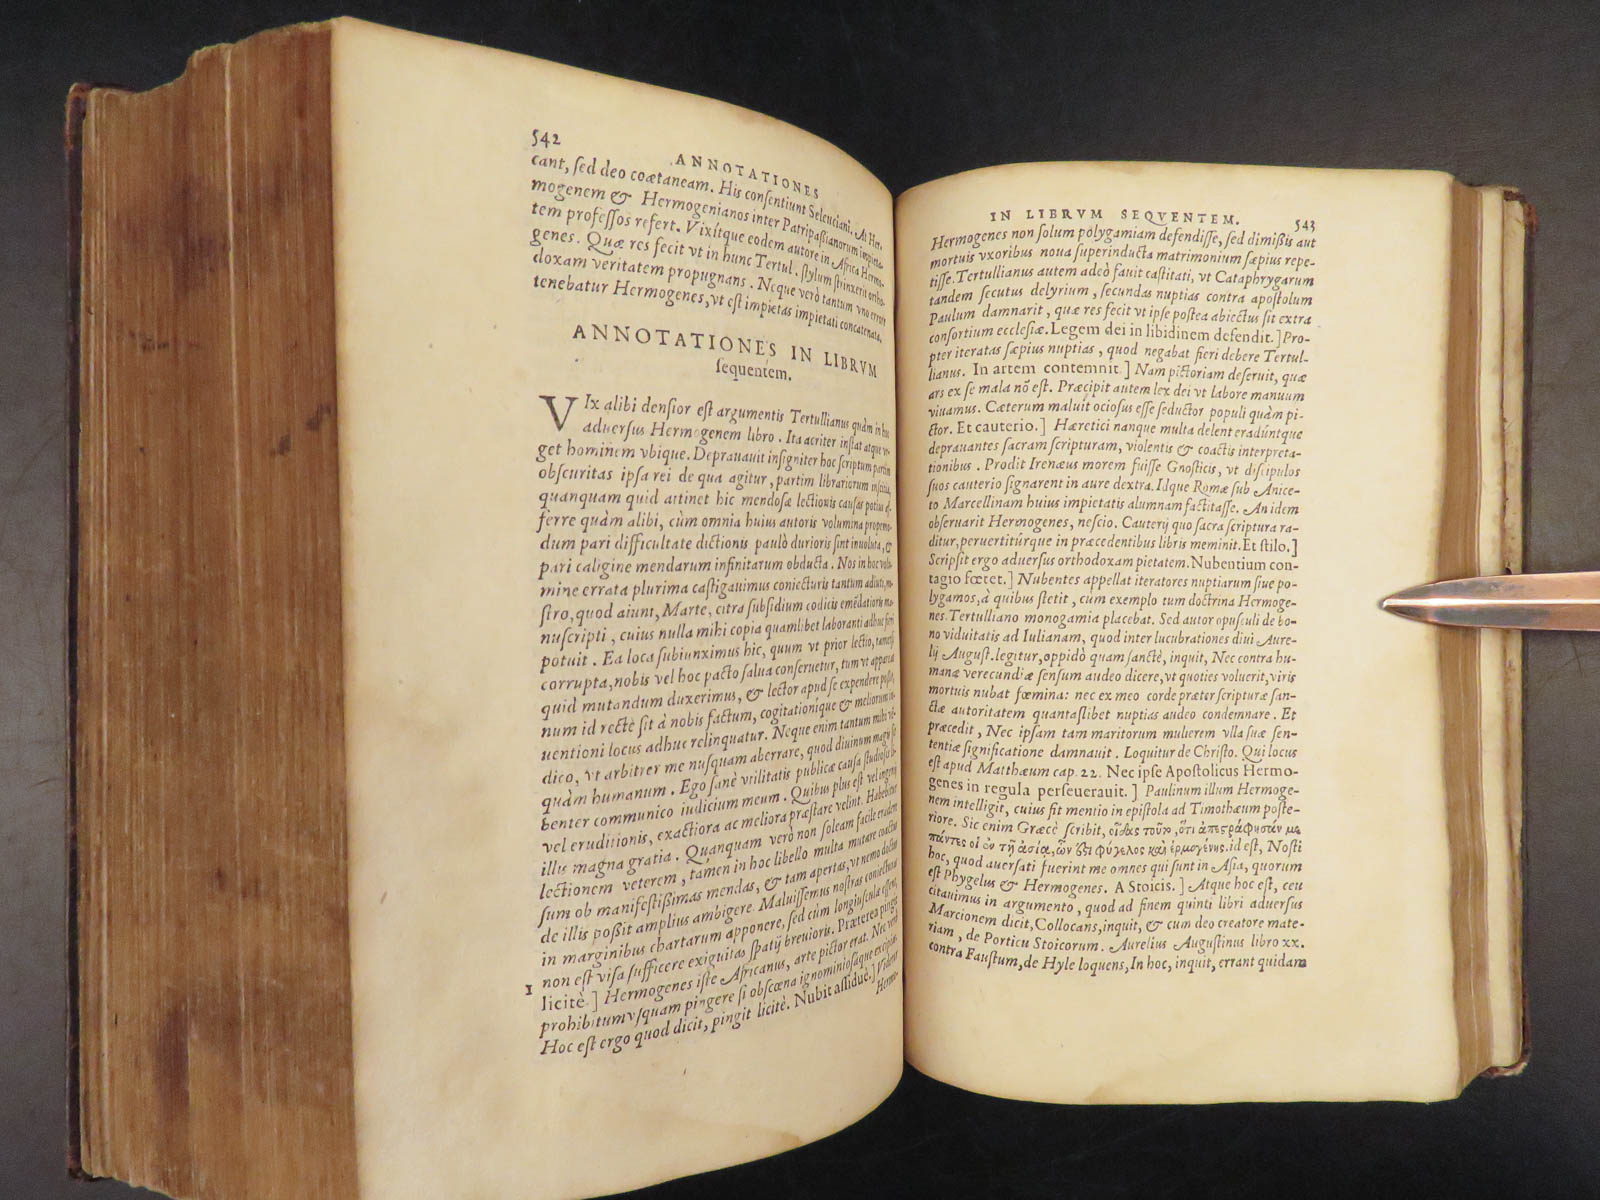 542
ANNOTATIONES
cant, sed deo coætaneam. His consentiunt Seleuciani. At Her-
mogenem & Hermogenianos inter Patripassianorum impieta-
tem professos refert. Vixítque eodem autore in Africa Hermo-
genes. Quæ res fecit vt in hunc Tertul. stylum strinxerit ortho-
doxam veritatem propugnans. Neque verò tantum vno errore
tenebatur Hermogenes, vt est impietas impietati concatenata.
ANNOTATIONES IN LIBRVM
sequentem.
VIx alibi densior est argumentis Tertullianus quàm in hoc
aduersus Hermogenem libro. Ita acriter instat atque vr-
get hominem vbique. Deprauauit insigniter hoc scriptum partim
obscuritas ipsa rei de qua agitur, partim librariorum inscitia,
quanquam quid attinet hic mendosæ lectionis causas potius af-
ferre quàm alibi, cùm omnia huius autoris volumina propemo-
dum pari difficultate dictionis paulò durioris sint inuoluta, &
pari caligine mendarum infinitarum obducta. Nos in hoc volu-
mine errata plurima castigauimus coniecturis tantum adiuti, no-
stro, quod aiunt, Marte, citra subsidium codicis emēdatioris ma-
nuscripti, cuius nulla mihi copia quamlibet laboranti adhuc fieri
potuit. Ea loca subiunximus hic, quum vt prior lectio, tametsi
corrupta, nobis vel hoc pacto salua conseruetur, tum vt appareat
quid mutandum duxerimus, & lector apud se expendere possit,
num id rectè sit à nobis factum, cogitationíque & meliorum in-
uentioni locus adhuc relinquatur. Neque enim tantum mihi ven-
dico, vt arbitrer me nusquam aberrare, quod diuinum magis sit
quàm humanum. Ego sanè vtilitatis publicæ causa studiosis li-
benter communico iudicium meum. Quibus plus est vel ingenij
vel eruditionis, exactiora ac meliora præstare velint. Habebitur
illis magna gratia. Quanquam verò non soleam facile eradere
lectionem veterem, tamen in hoc libello multa mutare coactus
sum ob manifestissimas mendas, & tam apertas, vt nemo doctus
de illis possit amplius ambigere. Maluissemus nostras coniecturas
in marginibus chartarum apponere, sed cùm longiuscula essent,
non est visa sufficere exiguitas spatij breuioris. Præterea pingit
1 licitè.] Hermogenes iste Africanus, arte pictor erat. Nec verò
prohibitum vsquam pingere si obscœna ignominiosaque excipias.
Hoc est ergo quod dicit, pingit licitè. Nubit assiduè.] Videtur
Hermo-
IN LIBRVM SEQVENTEM. 543
Hermogenes non solum polygamiam defendisse, sed dimissis aut
mortuis vxoribus noua superinducta matrimonium sæpius repe-
tisse. Tertullianus autem adeò fauit castitati, vt Cataphrygarum
tandem secutus delyrium, secundas nuptias contra apostolum
Paulum damnarit, quæ res fecit vt ipse postea abiectus sit extra
consortium ecclesiæ. Legem dei in libidinem defendit.] Pro-
pter iteratas sæpius nuptias, quod negabat fieri debere Tertul-
lianus. In artem contemnit.] Nam pictoriam deseruit, quæ
ars ex se mala nō est. Præcipit autem lex dei vt labore manuum
viuamus. Cæterum maluit ociosus esse seductor populi quàm pi-
ctor. Et cauterio.] Hæretici nanque multa delent eradúntque
deprauantes sacram scripturam, violentis & coactis interpreta-
tionibus. Prodit Irenæus morem fuisse Gnosticis, vt discipulos
suos cauterio signarent in aure dextra. Idque Romæ sub Anice-
to Marcellinam huius impietatis alumnam factitasse. An idem
obseruarit Hermogenes, nescio. Cauterij quo sacra scriptura ra-
ditur, peruertitúrque in præcedentibus libris meminit. Et stilo.]
Scripsit ergo aduersus orthodoxam pietatem. Nubentium con-
tagio fœtet.] Nubentes appellat iteratores nuptiarum siue po-
lygamos, à quibus stetit, cùm exemplo tum doctrina Hermoge-
nes. Tertulliano monogamia placebat. Sed autor opusculi de bo-
no viduitatis ad Iulianam, quod inter lucubrationes diui Aure-
lij August. legitur, oppidò quam sanctè, inquit, Nec contra hu-
manæ verecundiæ sensum audeo dicere, vt quoties voluerit, viris
mortuis nubat fœmina: nec ex meo corde præter scripturæ san-
ctæ autoritatem quantaslibet nuptias audeo condemnare. Et
præcedit, Nec ipsam tam maritorum mulierem vlla suæ sen-
tentiæ significatione damnauit. Loquitur de Christo. Qui locus
est apud Matthæum cap. 22. Nec ipse Apostolicus Hermo-
genes in regula perseuerauit.] Paulinum illum Hermoge-
nem intelligit, cuius fit mentio in epistola ad Timothæum poste-
riore. Sic enim Græcè scribit, οἶδας τοῦτο, ὅτι ἀπεστράφησάν με
πάντες οἱ ἐν τῇ ἀσίᾳ, ὧν ἐστι φύγελος καὶ ἑρμογένης. id est, Nosti
hoc, quod auersati fuerint me omnes qui sunt in Asia, quorum
est Phygelus & Hermogenes. A Stoicis.] Atque hoc est, ceu
citauimus in argumento, quod ad finem quinti libri aduersus
Marcionem dicit, Collocans, inquit, & cum deo creatore mate-
riam, de Porticu Stoicorum. Aurelius Augustinus libro xx.
contra Faustum, de Hyle loquens, In hoc, inquit, errant quidam